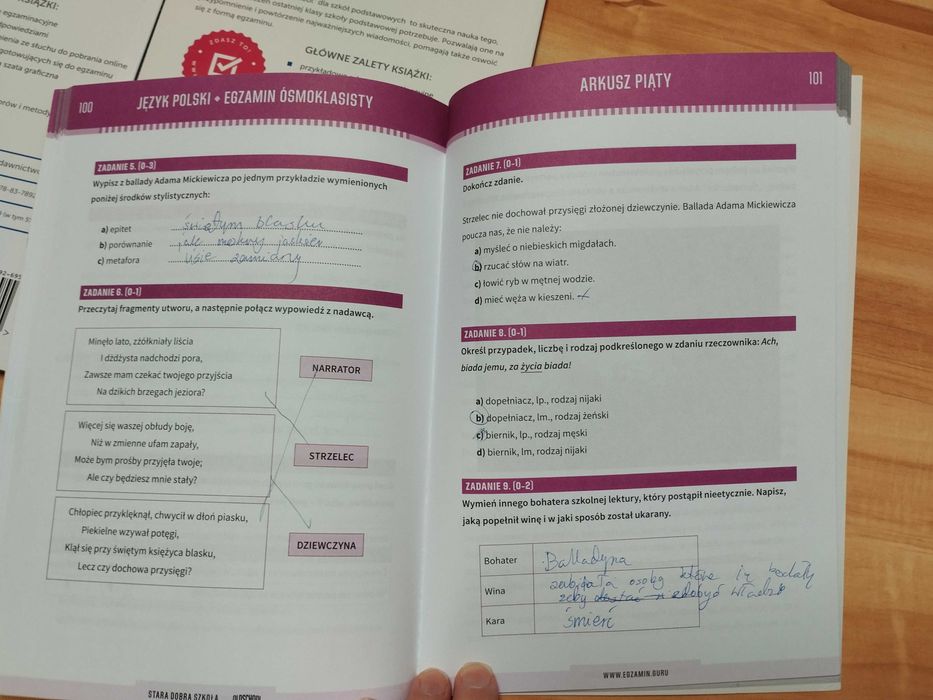 KSIĄŻKI:
egzaminacyjne
ienia ze słuchu do pobrania online
gotowujących się do egzaminu
szata graficzna
dla szkół podstawowych to skuteczna nauka tego,
ostatniej klasy szkoły podstawowej potrzebuje. Pozwalają one na
przypomnienie i powtórzenie najważniejszych wiadomości, pomagają także oswoić
się z formą egzaminu.
ZDASZ TO!
GŁÓWNE ZALETY KSIĄŻKI:
100
JĘZYK POLSKI • EGZAMIN ÓSMOKLASISTY
ZADANIE 5. (0-3)
Wypisz z ballady Adama Mickiewicza po jednym przykładzie wymienionych
poniżej środków stylistycznych:
a) epitet świętym blasku
b) porównanie jak
c) metafora
ZADANIE 6. (0-1)
Przeczytaj fragmenty utworu, a następnie połącz wypowiedź z nadawcą.
Minęło lato, zżółkniały liścia
I dżdżysta nadchodzi pora,
Zawsze mam czekać twojego przyjścia
Na dzikich brzegach jeziora?
Więcej się waszej obłudy boję,
Niż w zmienne ufam zapały,
Może bym prośby przyjęła twoje;
Ale czy będziesz mnie stały?
Chłopiec przyklęknął, chwycił w dłoń piasku,
Piekielne wzywał potęgi,
Klął się przy świętym księżyca blasku,
Lecz czy dochowa przysięgi?
NARRATOR
STRZELEC
DZIEWCZYNA
STARA DOBRA SZKOŁA OLDSCHOOL
ARKUSZ PIĄTY
101
ZADANIE 7. (0-1)
Dokończ zdanie.
Strzelec nie dochował przysięgi złożonej dziewczynie. Ballada Adama Mickiewicza
poucza nas, że nie należy:
a) myśleć o niebieskich migdałach.
b) rzucać słów na wiatr.
c) łowić ryb w mętnej wodzie.
d) mieć węża w kieszeni.
ZADANIE 8. (0-1)
Określ przypadek, liczbę i rodzaj podkreślonego w zdaniu rzeczownika: Ach,
biada jemu, za życia biada!
a) dopełniacz, lp., rodzaj nijaki
b) dopełniacz, lm., rodzaj żeński
c) biernik, lp., rodzaj męski
d) biernik, lm, rodzaj nijaki
ZADANIE 9. (0-2)
Wymień innego bohatera szkolnej lektury, który postąpił nieetycznie. Napisz,
jaką popełnił winę i w jaki sposób został ukarany.
Bohater Balladyna
Wina zabijała osoby które
żeby zdobyć władze
Kara śmierć
WWW.EGZAMIN.GURU